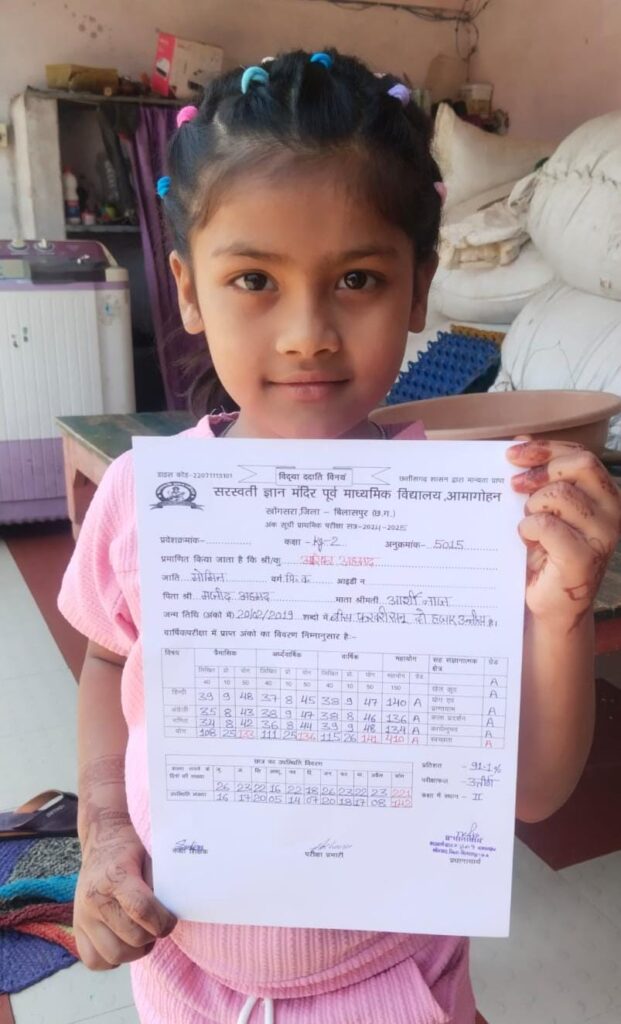 डाइस कोड-22071115101 विद्या ददाति विनयं छत्तीसगढ़ शासन द्वारा मान्यता प्राप्त
सरस्वती ज्ञान मंदिर पूर्व माध्यमिक विद्यालय,आमागोहन
खोंगसरा,जिला – बिलासपुर (छ.ग.)
अंक सूची प्राथमिक परीक्षा सत्र-2024-2025
प्रवेशक्रमांक- कक्षा - kg-2 अनुक्रमांक- 5015
प्रमाणित किया जाता है कि श्री/कु अहमद
जाति मोमिन वर्ग पि.क. आईडी न
पिता श्री मजीद अहमद माता श्रीमती आर्शी नाज
जन्म तिथि (अंको में) 20/02/2019 शब्दों में बीस फरवरी सन् दो हजार उन्नीस है।
वार्षिकपरीक्षा में प्राप्त अंको का विवरण निम्नानुसार है:-
विषय त्रैमासिक अर्ध्दवार्षिक वार्षिक महायोग सह संज्ञानात्मक क्षेत्र ग्रेड
लिखित प्रो योग लिखित प्रो योग लिखित प्रो. योग महायोग ग्रेड
40 10 50 40 10 50 40 10 50 150 खेल कूद A
हिन्दी 39 9 48 37 8 45 38 9 47 140 A योग एवं प्राणायाम A
अंग्रेजी 35 8 43 38 9 47 38 8 46 136 A कला प्रदर्शन A
गणित 34 8 42 36 8 44 39 9 48 134 A A
योग 108 25 133 111 25 136 115 26 141 410 A स्वच्छता A
छात्र का उपस्थिति विवरण
प्रतिशत - 91.1%
परीक्षाफल- उत्तीर्ण
कक्षा में स्थान - II
26 23 22 16 22 18 26 23 22 23 221
उपस्थिति संख्या 16 17 20 05 14 07 20 18 17 08 142
कक्षा शिक्षक परीक्षा प्रभारी प्रधानाचार्य